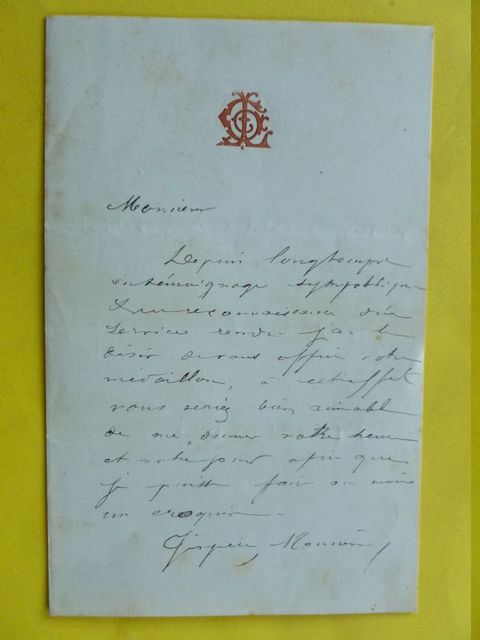 Monsieur
Depuis longtemps
en témoignage sympathique
de reconnaissance d'un
service rendu j'ai le
désir de vous offrir votre
médaillon, à cet effet
vous seriez bien aimable
de me donner votre heure
et votre jour afin que
je puisse faire au moins
un croquis.
J'espère, Monsieur,